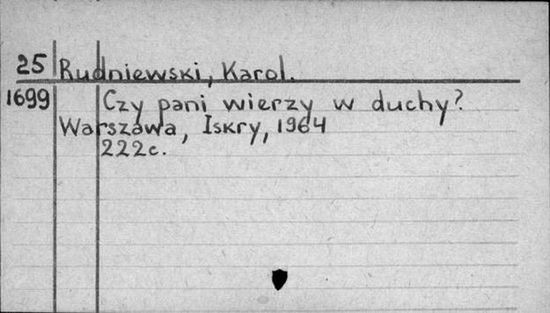 25 Rudniewski, Karol.
1699 Czy pani wierzy w duchy?
Warszawa, Iskry, 1964
222c.